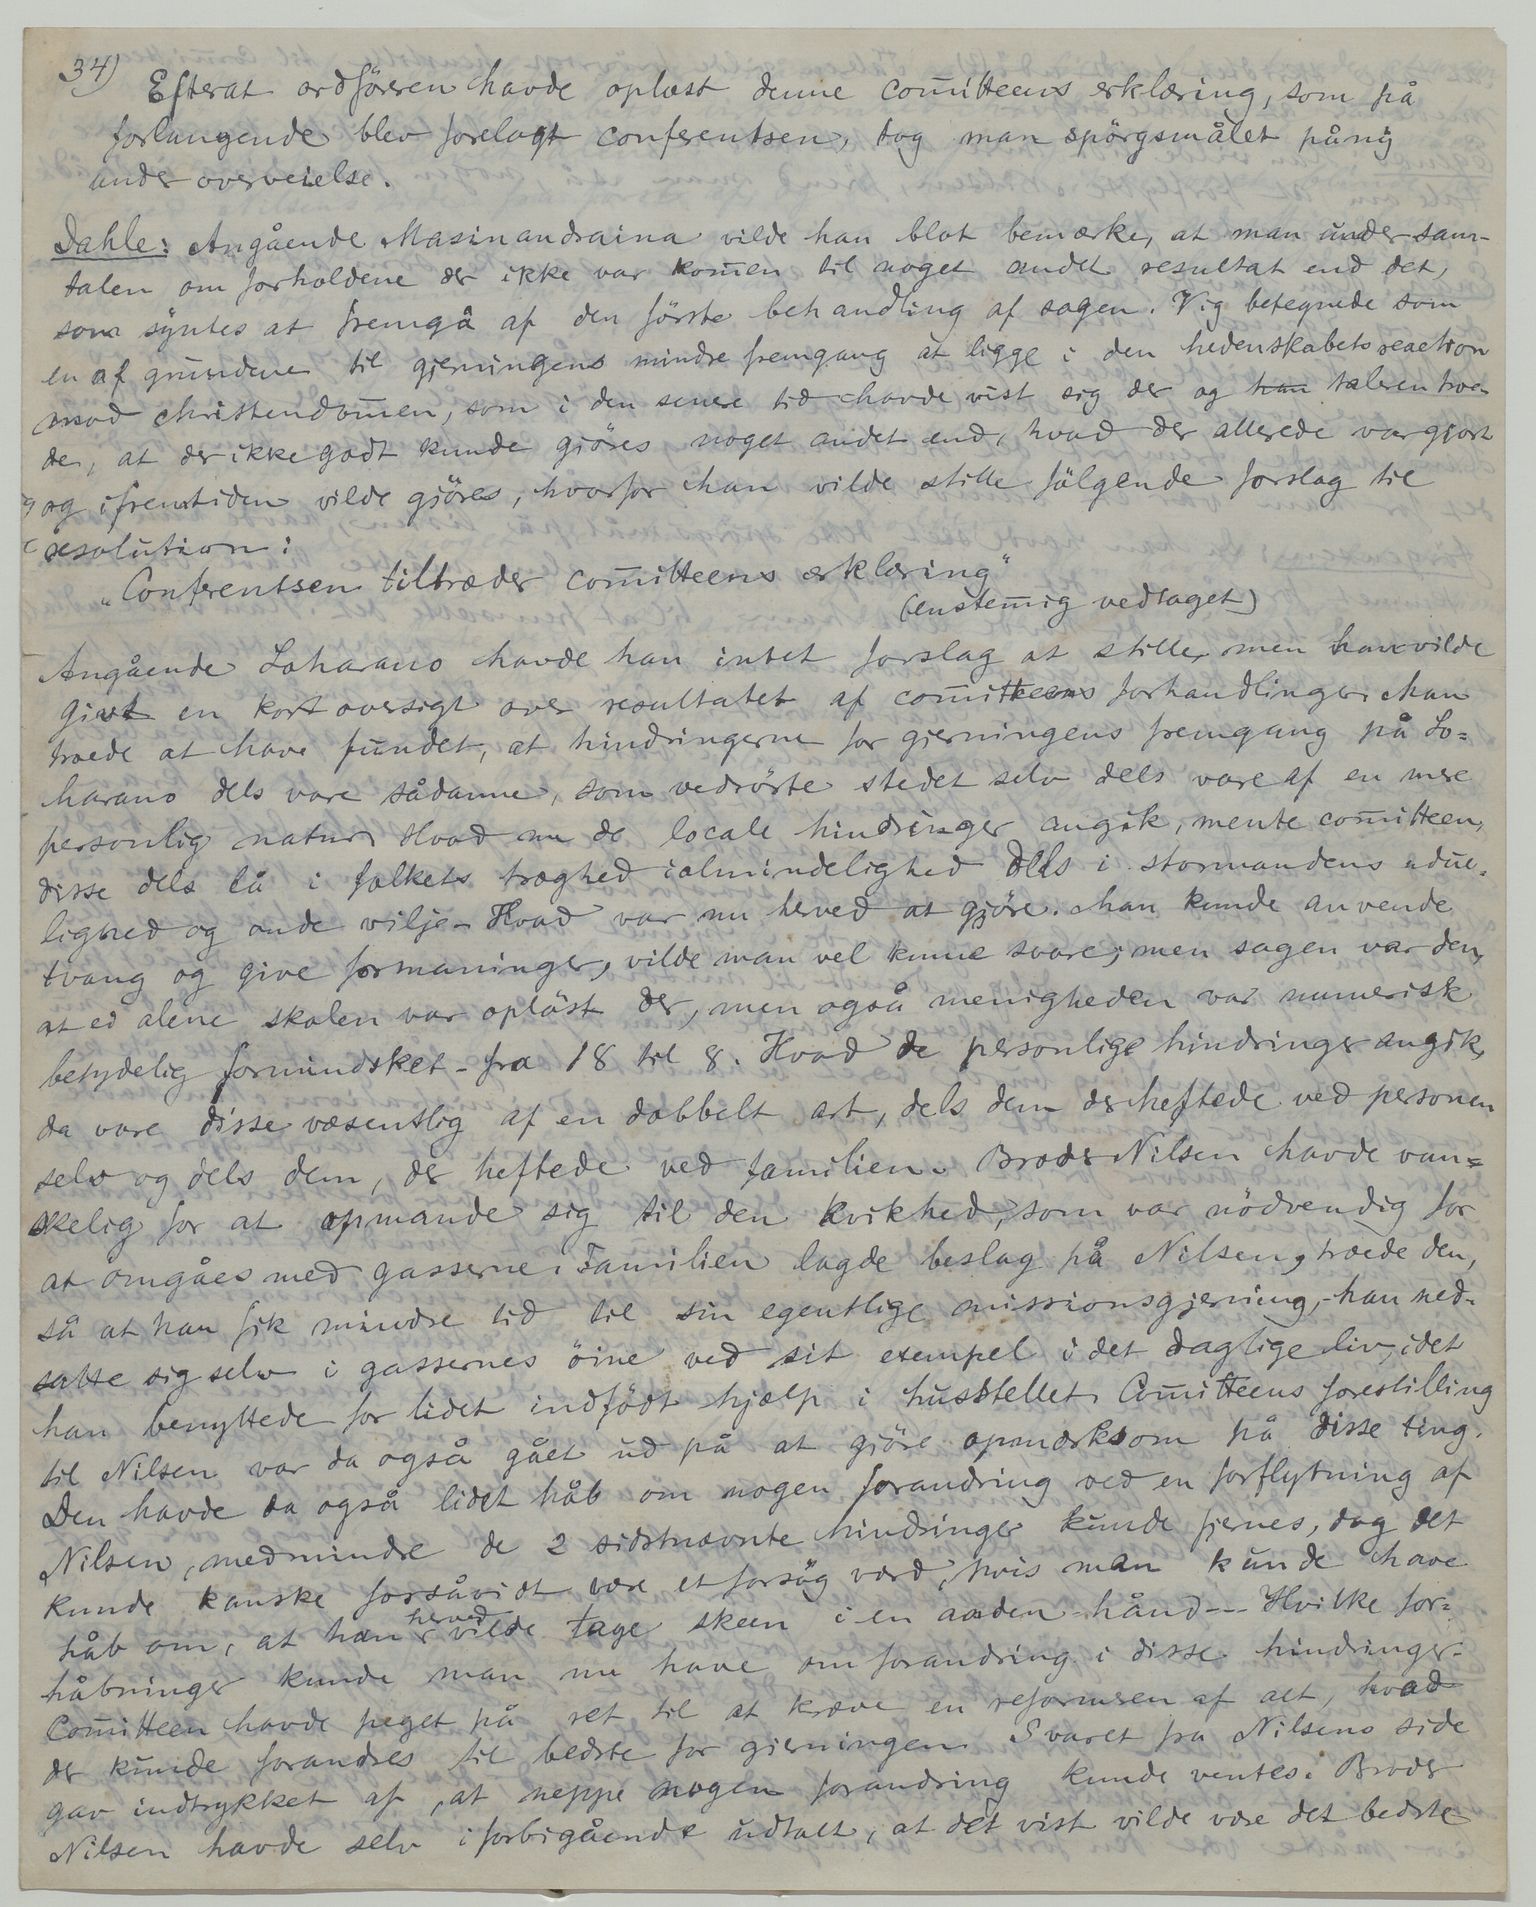 34)
Efterat ordføreren havde oplæst denne com̄itteens erklæring, som på
forlangende blev forelagt conferentsen, tog man spörgsmålet påny
under overveielse.
Dahle: Angående Masinandraina vilde han blot bemærke, at man under sam-
talen om forholdene der ikke var kom̄en til noget andet resultat end det,
som syntes at fremgå af den förste behandling af sagen. Vig betegnede som
en af grundene til gjerningens mindre fremgang at ligge i den hedenskabets reaction
mod christendom̄en, som i den senere tid havde vist sig der og han taleren troe-
de, at der ikke godt kunde gjöres noget andet end, hvad der allerede var gjort
og i fremtiden vilde gjöres, hvorfor han vilde stille fölgende forslag til
resolution:
„Conferentsen tiltræder com̄itteens erklæring"
(enstem̄ig vedtaget)
Angående Loharano havde han intet forslag at stille, men han vilde
givet en kort oversigt over resultatet af com̄itteens forhandlinger. Man
troede at have fundet, at hindringerne for gjerningens fremgang på Lo=
harano dels vare sådanne, som vedrörte stedet selv dels vare af en mere
personlig natur. Hvad nu de locale hindringer angik, mente com̄itteen,
disse dels lå i folkets træghed i almindelighed dels i stormandens udue-
lighed og onde vilje – Hvad var nu herved at gjöre. Man kunde anvende
tvang og give formaninger, vilde man vel kunne svare; men sagen var den,
at ei alene skolen var oplöst der, men også menigheden var numerisk
betydelig formindsket – fra 18 til 8. Hvad de personlige hindringer angik,
da vare disse væsentlig af en dobbelt art, dels dem der heftede ved personen
selv og dels dem, der heftede ved familien. Broder Nilsen havde van=
skelig for at opmande sig til den kvikhed, som var nödvendig for
at omgåes med gasserne. Familien lagde beslag på Nilsen, troede den,
så at han fik mindre tid til sin egentlige missionsgjerning, – han ned-
satte sig selv i gassernes öine ved sit exempel i det daglige liv, idet
han benyttede for lidet indfödt hjælp i husstellet. Com̄itteens forestilling
til Nilsen var da også gået ud på at gjöre opmærksom på disse ting.
Den havde da også lidet håb om nogen forandring ved en forflytning af
Nilsen, medmindre de 2 sidstnævnte hindringer kunde fjernes, dog det
kunde kanske forsåvidt være et forsög værd, hvis man kunde have
håb om, at han herved vilde tage skeen i en anden hånd --- Hvilke for=
håbninger kunde man nu have om forandring i disse hindringer.
Com̄itteen havde peget på ret til at kræve en reformeren af alt, hvad
der kunde forandres til bedste for gjerningen. Svaret fra Nilsens side
gav indtrykket af, at neppe nogen forandring kunde ventes. Broder
Nilsen havde selv i forbigående udtalt, at det vist vilde være det bedste